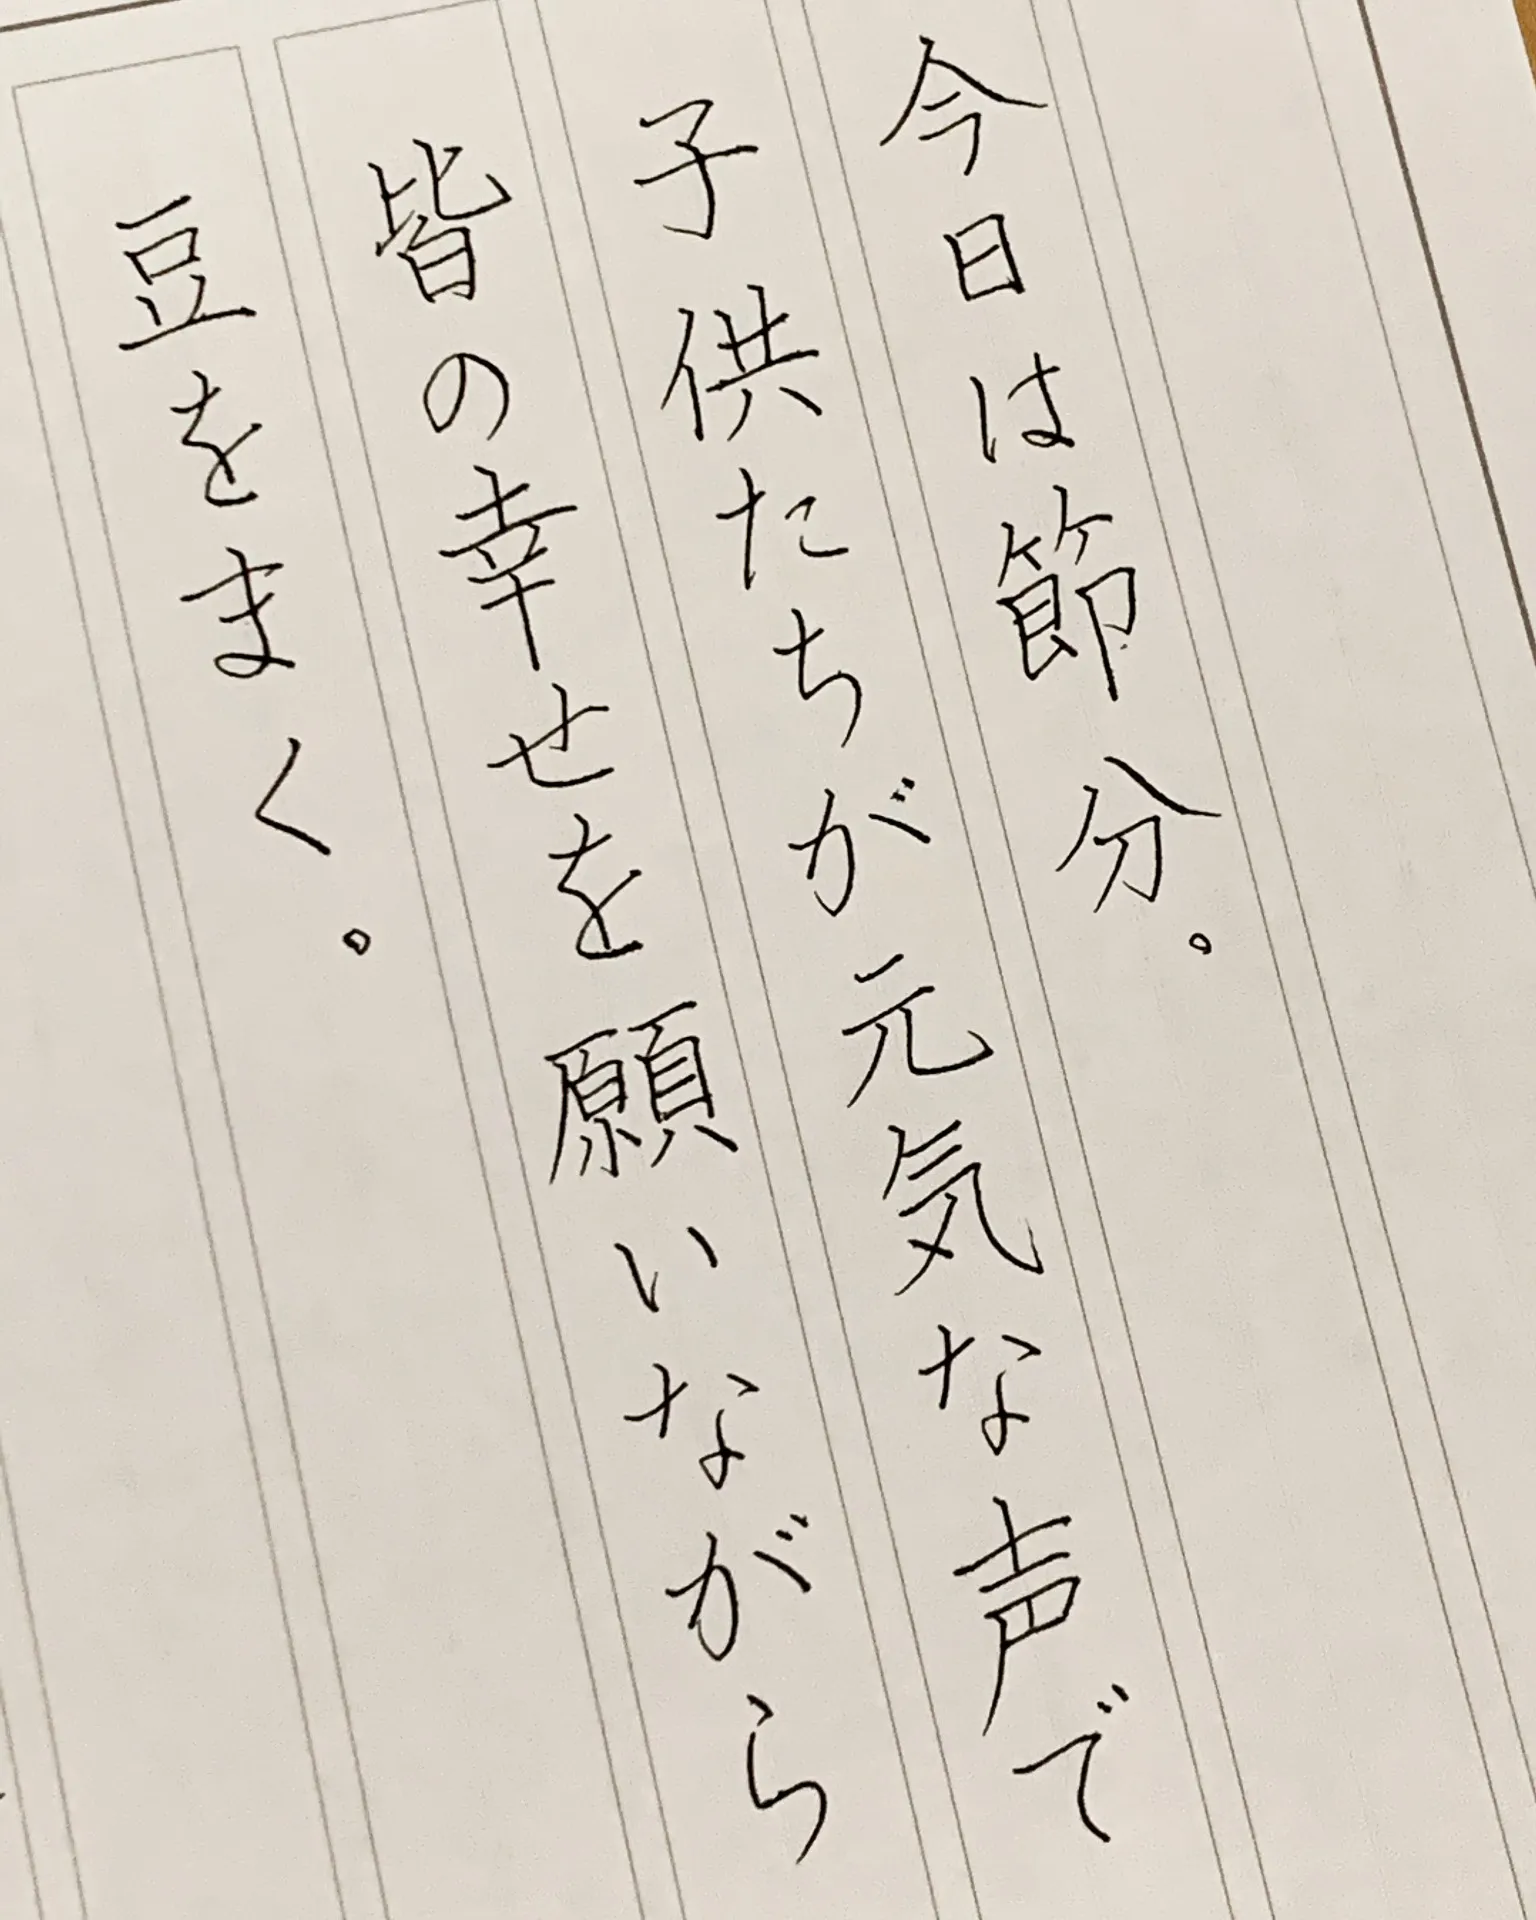 今日は節分。
子供たちが元気な声で
皆の幸せを願いながら
豆をまく。